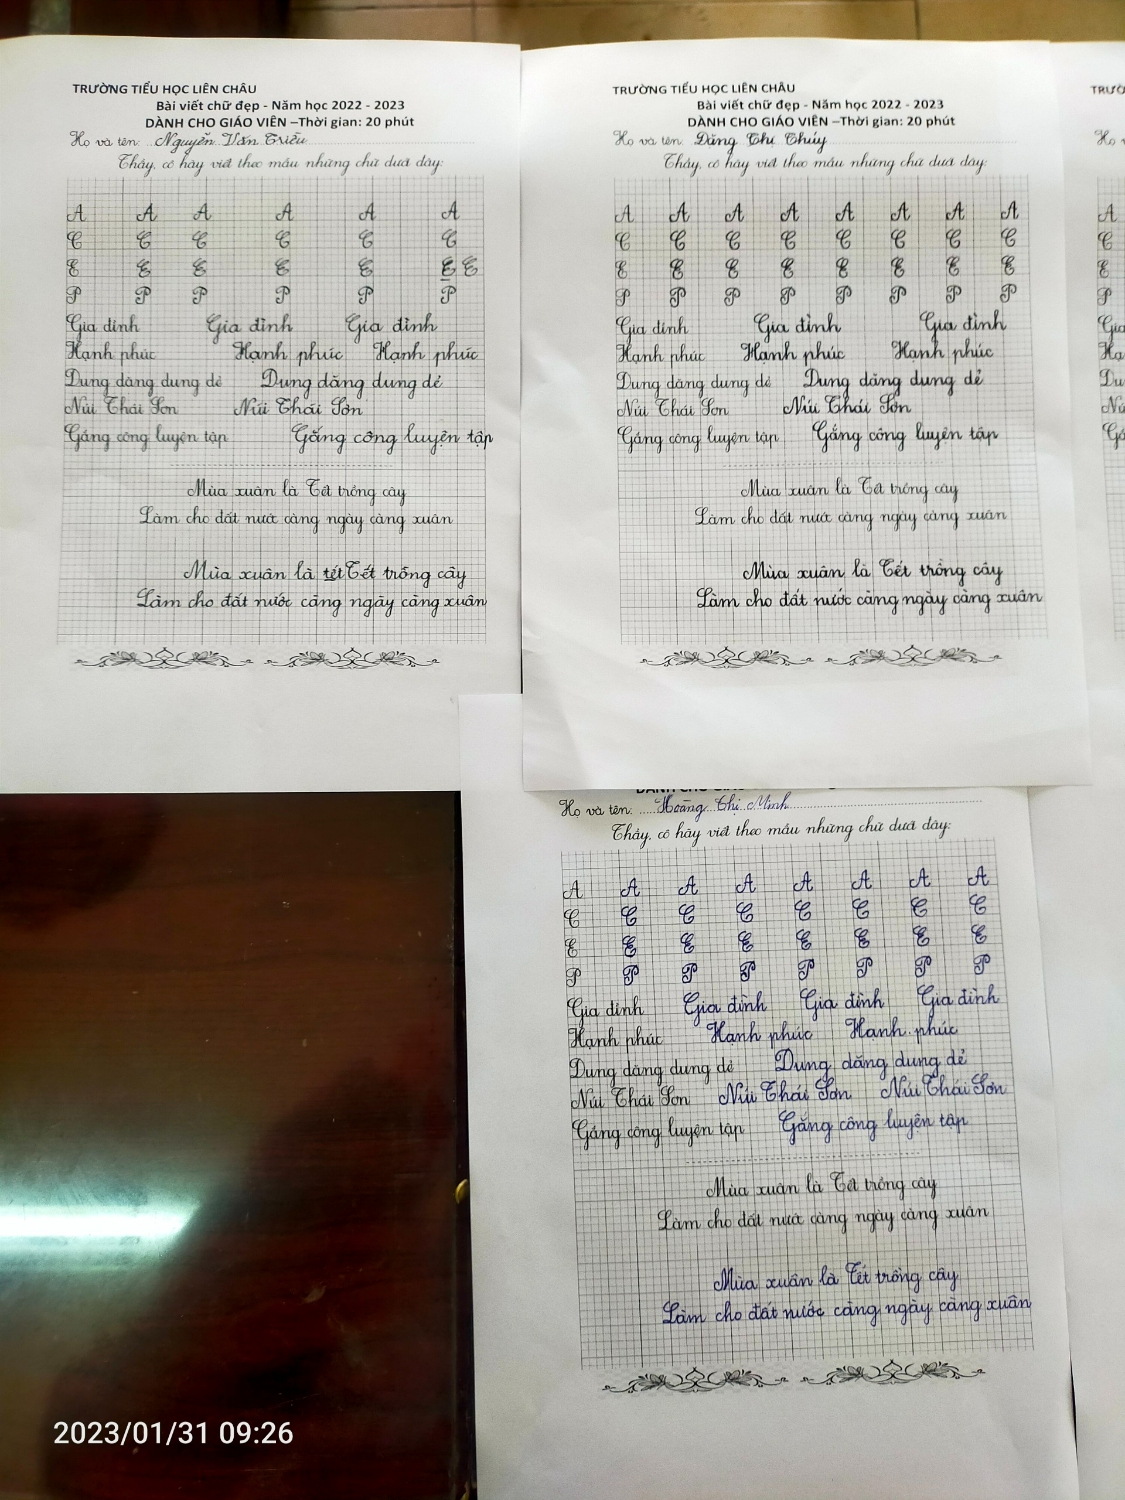 TRƯỜNG TIỂU HỌC LIÊN CHÂU
Bài viết chữ đẹp - Năm học 2022 - 2023
DÀNH CHO GIÁO VIÊN –Thời gian: 20 phút
Họ và tên: Nguyễn Văn Triều
Thầy, cô hãy viết theo mẫu những chữ dưới đây:
A A A A A A
C C C C C C
E E E E E E E
P P P P P P
Gia đình Gia đình Gia đình
Hạnh phúc Hạnh phúc Hạnh phúc
Dung dăng dung dẻ Dung dăng dung dẻ
Núi Thái Sơn Núi Thái Sơn
Gắng công luyện tập Gắng công luyện tập
Mùa xuân là Tết trồng cây
Làm cho đất nước càng ngày càng xuân
Mùa xuân là tết Tết trồng cây
Làm cho đất nước càng ngày càng xuân
TRƯỜNG TIỂU HỌC LIÊN CHÂU
Bài viết chữ đẹp - Năm học 2022 - 2023
DÀNH CHO GIÁO VIÊN –Thời gian: 20 phút
Họ và tên: Đặng Thị Thúy
Thầy, cô hãy viết theo mẫu những chữ dưới đây:
A A A A A A A A
C C C C C C C C
E E E E E E E E
P P P P P P P P
Gia đình Gia đình Gia đình
Hạnh phúc Hạnh phúc Hạnh phúc
Dung dăng dung dẻ Dung dăng dung dẻ
Núi Thái Sơn Núi Thái Sơn
Gắng công luyện tập Gắng công luyện tập
Mùa xuân là Tết trồng cây
Làm cho đất nước càng ngày càng xuân
Mùa xuân là Tết trồng cây
Làm cho đất nước càng ngày càng xuân
Họ và tên: Hoàng Thị Minh
Thầy, cô hãy viết theo mẫu những chữ dưới đây:
A A A A A A A A
C C C C C C C C
E E E E E E E E
P P P P P P P P
Gia đình Gia đình Gia đình Gia đình
Hạnh phúc Hạnh phúc Hạnh phúc
Dung dăng dung dẻ Dung dăng dung dẻ
Núi Thái Sơn Núi Thái Sơn Núi Thái Sơn
Gắng công luyện tập Gắng công luyện tập
Mùa xuân là Tết trồng cây
Làm cho đất nước càng ngày càng xuân
Mùa xuân là Tết trồng cây
Làm cho đất nước càng ngày càng xuân
2023/01/31 09:26